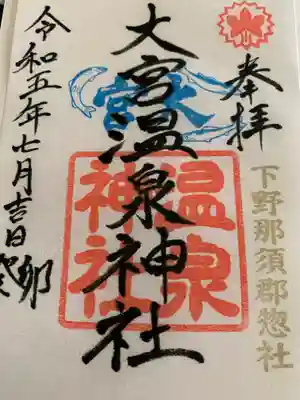 奉拝
下野那須郡惣社
大宮温泉神社
温泉
神社
令和五年七月吉日